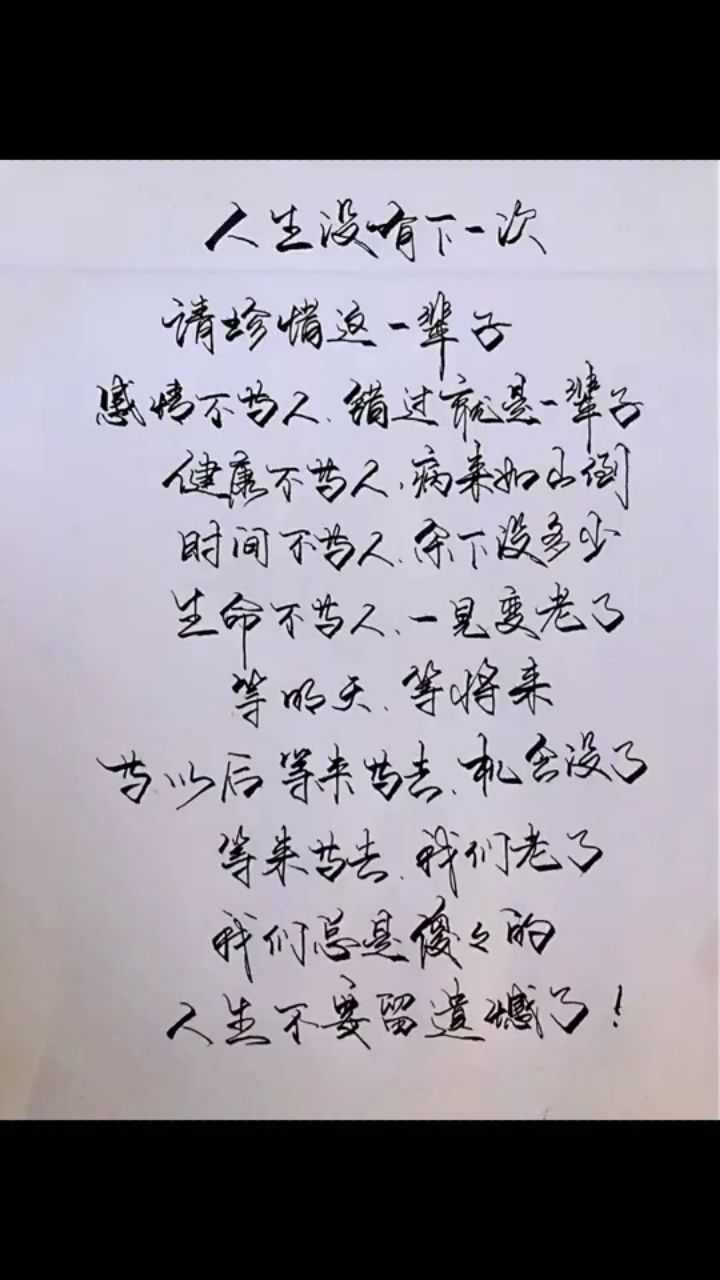 人生没有下一次
请珍惜这一辈子
感情不等人、错过就是一辈子
健康不等人、病来如山倒
时间不等人、余下没多少
生命不等人、一晃变老了
等明天、等将来
等以后等来等去、机会没了
等来等去、我们老了
我们总是傻々的
人生不要留遗憾了！